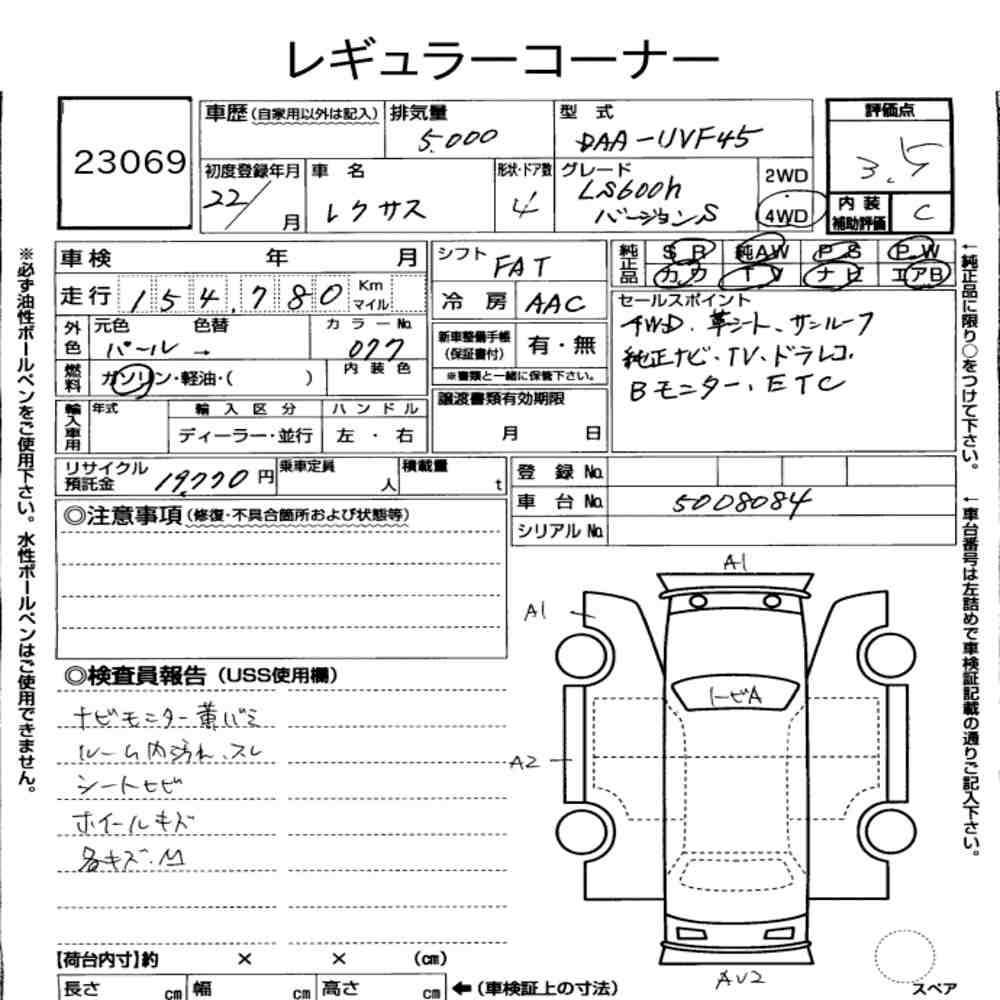 レギュラーコーナー
23069
車歴(自家用以外は記入)
排気量
5.000
型式
DAA-UVF45
評価点
3.5
初度登録年月
22/ 月
車名
レクサス
形状・ドア数
4
グレード
LS600h
バージョンS
2WD
4WD
内装
補助評価
C
車検 年 月
シフト
FAT
純正品
SR 純AW PS PW
カワ TV ナビ エアB
走行 154,780 Km
マイル
冷房
AAC
セールスポイント
4WD. 革シート、サンルーフ
純正ナビ・TV・ドラレコ.
Bモニター、ETC
外色
元色 色替
パール →
カラーNo.
077
新車整備手帳
(保証書付)
有・無
※書類と一緒に保管下さい。
燃料
ガソリン・軽油・( )
内装色
輸入車用
年式
輸入区分
ディーラー・並行
ハンドル
左・右
譲渡書類有効期限
月 日
リサイクル
預託金
19,770円
乗車定員
人
積載量
t
登録No.
車台No.
5008084
シリアルNo.
◎注意事項(修復・不具合箇所および状態等)
◎検査員報告(USS使用欄)
ナビモニター黄バミ
ルーム内汚れ、スレ
シートヒビ
ホイールキズ
各キズ.M
A1
A1
トビA
A2
AU2
スペア
【荷台内寸】約 × × (cm)
長さ cm 幅 cm 高さ cm
←(車検証上の寸法)
※必ず油性ボールペンをご使用下さい。水性ボールペンはご使用できません。
←純正品に限り○をつけて下さい。
←車台番号は左詰めで車検証記載の通りご記入下さい。